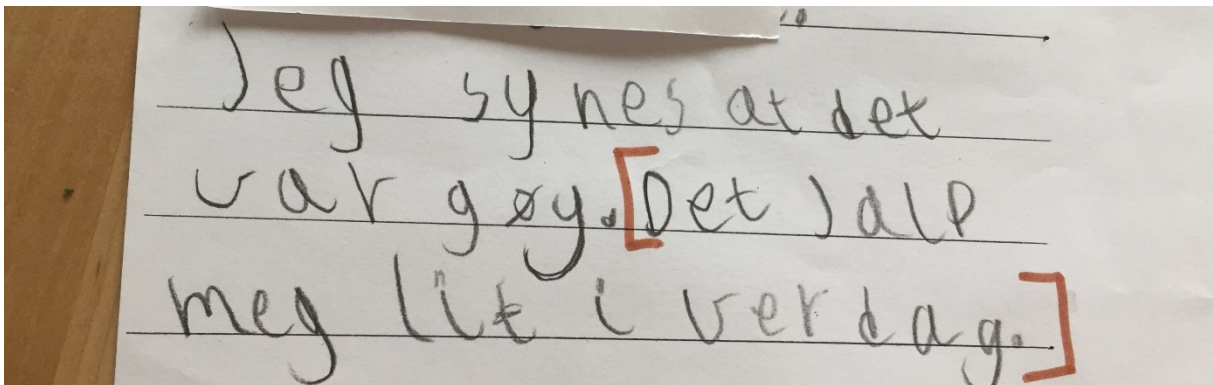 Jeg synes at det
var gøy. [Det jalp
meg lit i verdag.]